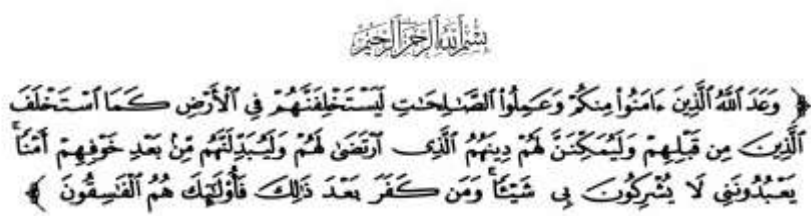 بِسْمِ ٱللَّهِ ٱلرَّحْمَٰنِ ٱلرَّحِيمِ
﴿ وَعَدَ ٱللَّهُ ٱلَّذِينَ ءَامَنُوا۟ مِنكُمْ وَعَمِلُوا۟ ٱلصَّٰلِحَٰتِ لَيَسْتَخْلِفَنَّهُمْ فِى ٱلْأَرْضِ كَمَا ٱسْتَخْلَفَ
ٱلَّذِينَ مِن قَبْلِهِمْ وَلَيُمَكِّنَنَّ لَهُمْ دِينَهُمُ ٱلَّذِى ٱرْتَضَىٰ لَهُمْ وَلَيُبَدِّلَنَّهُم مِّنۢ بَعْدِ خَوْفِهِمْ أَمْنًا ۚ
يَعْبُدُونَنِى لَا يُشْرِكُونَ بِى شَيْـًٔا ۚ وَمَن كَفَرَ بَعْدَ ذَٰلِكَ فَأُو۟لَٰٓئِكَ هُمُ ٱلْفَٰسِقُونَ ﴾